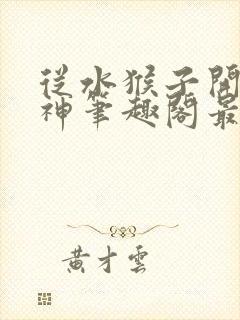 從水猴子開
神筆趣閣最
黃才雲